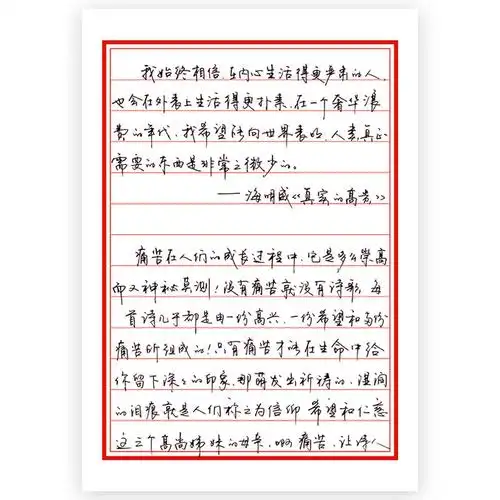 我始终相信，在内心生活得更严肃的人，
也会在外表上生活得更朴素，在一个奢华浪
费的年代，我希望能向世界表明，人类真正
需要的东西是非常之微少的。
——海明威《真实的高贵》
痛苦在人们的成长过程中，它是多么崇高
而又神秘莫测！没有痛苦就没有诗歌，每
首诗几乎都是由一份高兴、一份希望和两份
痛苦所组成的！只有痛苦才能在生命中给
你留下深深的印象，那萌发出祈祷的，湿润
的泪痕就是人们称之为信仰 希望和仁慈
这三个高尚姊妹的母亲，啊痛苦，让诗人